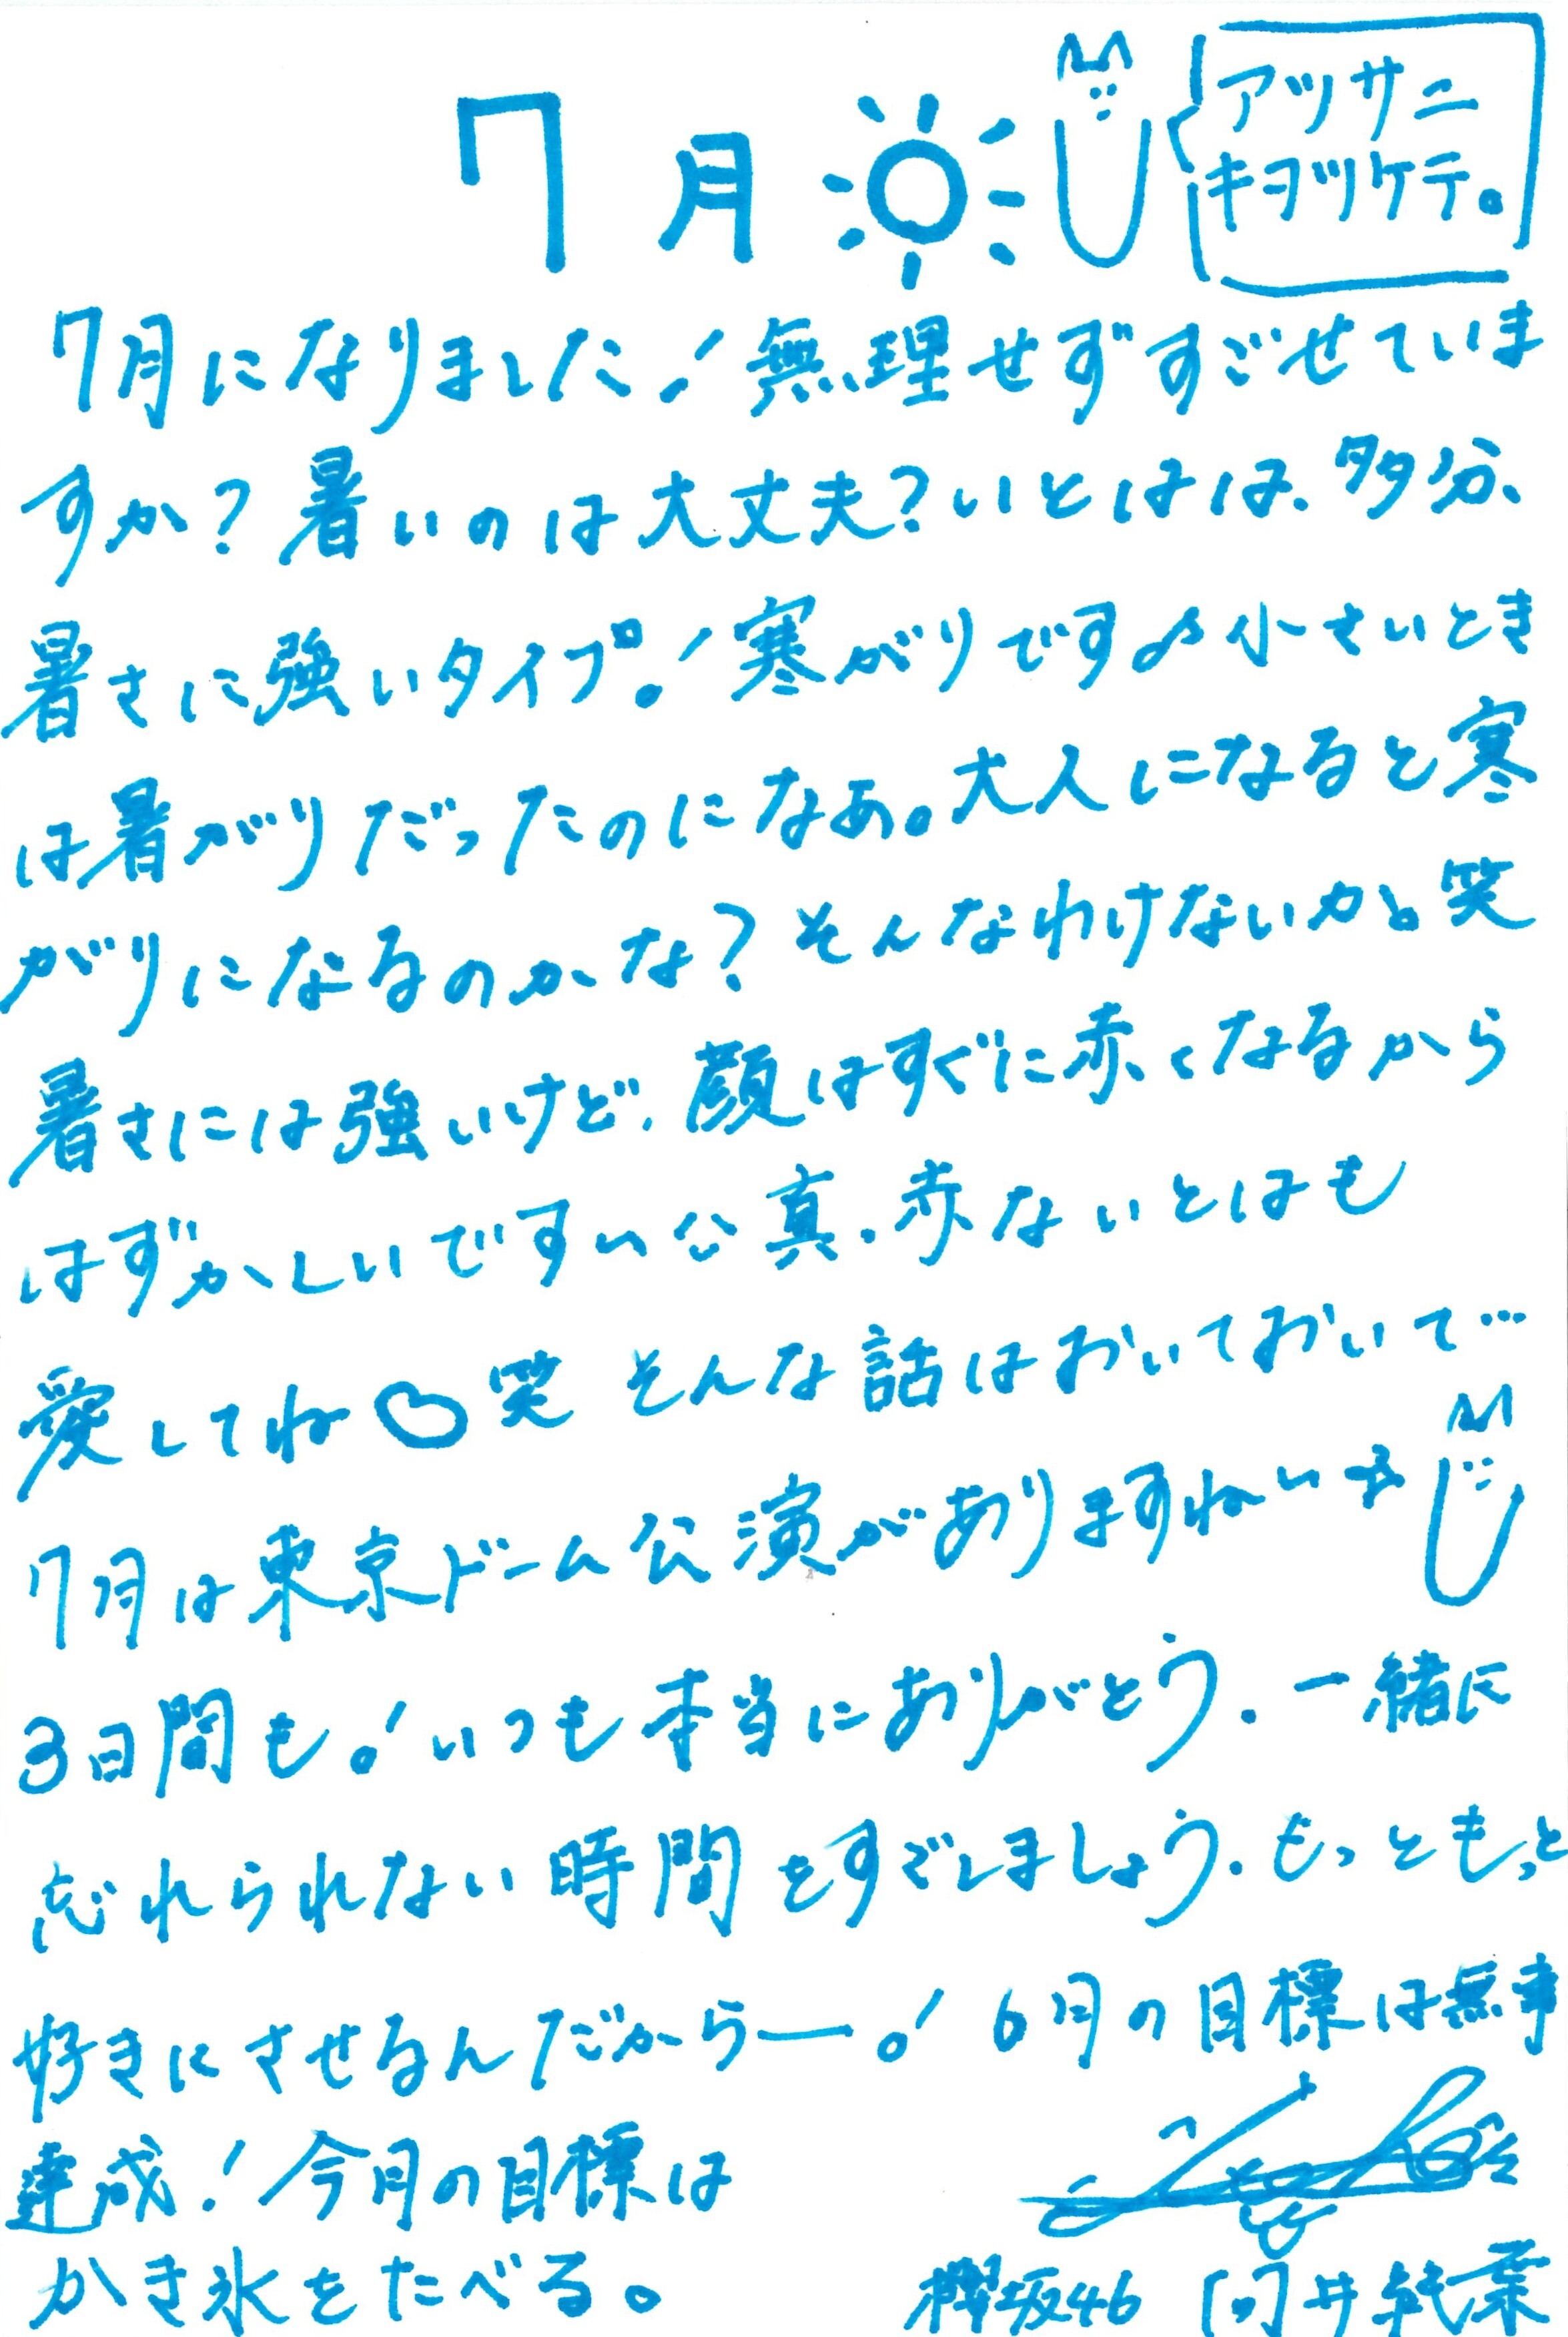 7月
アツサニ
キヲツケテ。
7月になりました！無理せずすごせていま
すか？暑いのは大丈夫？いとはは、多分、
暑さに強いタイプ！寒がりです♪小さいとき
は暑がりだったのになあ。大人になると寒
がりになるのかな？そんなわけないか。笑
暑さには強いけど、顔はすぐに赤くなるから
はずかしいです〜 真、赤ないとはも
愛してね♡笑 そんな話はおいておいて…
7月は東京ドーム公演がありますね〜
3日間も！いつも本当にありがとう。一緒に
忘れられない時間をすごしましょう。もっともっと
好きにさせるんだからー！6月の目標は無事
達成！今月の目標は
かき氷をたべる。
櫻坂46 向井純葉